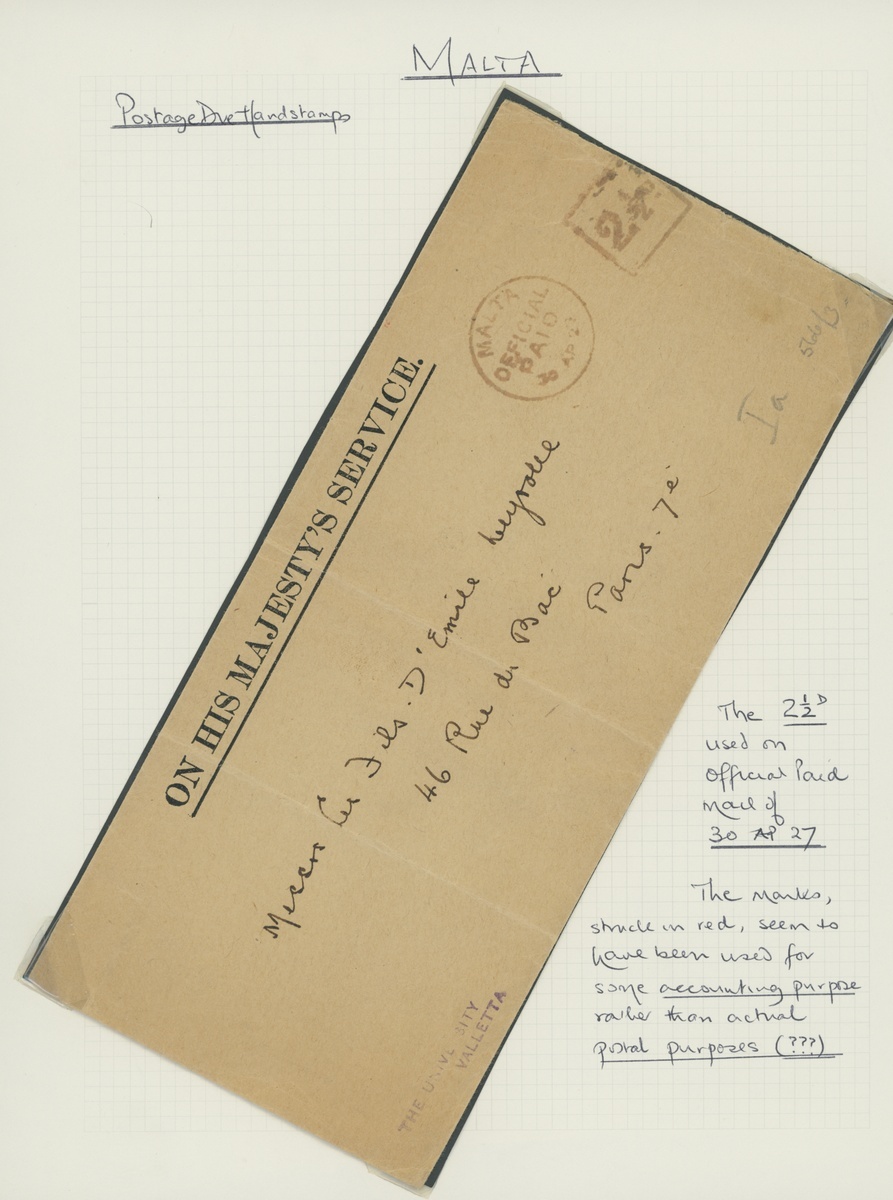 MALTA
Postage Due Handstamps
2½
MALTA
OFFICIAL
PAID
30 AP 27
ON HIS MAJESTY'S SERVICE.
Messrs Les Fils. D'Emile Deyrolle
46 Rue du Bac
Paris. 7e
Ia
THE UNIVERSITY
VALLETTA
The 2½D
used on
Official Paid
mail of
30 AP 27
The marks,
struck in red, seem to
have been used for
some accounting purpose
rather than actual
postal purposes (???)